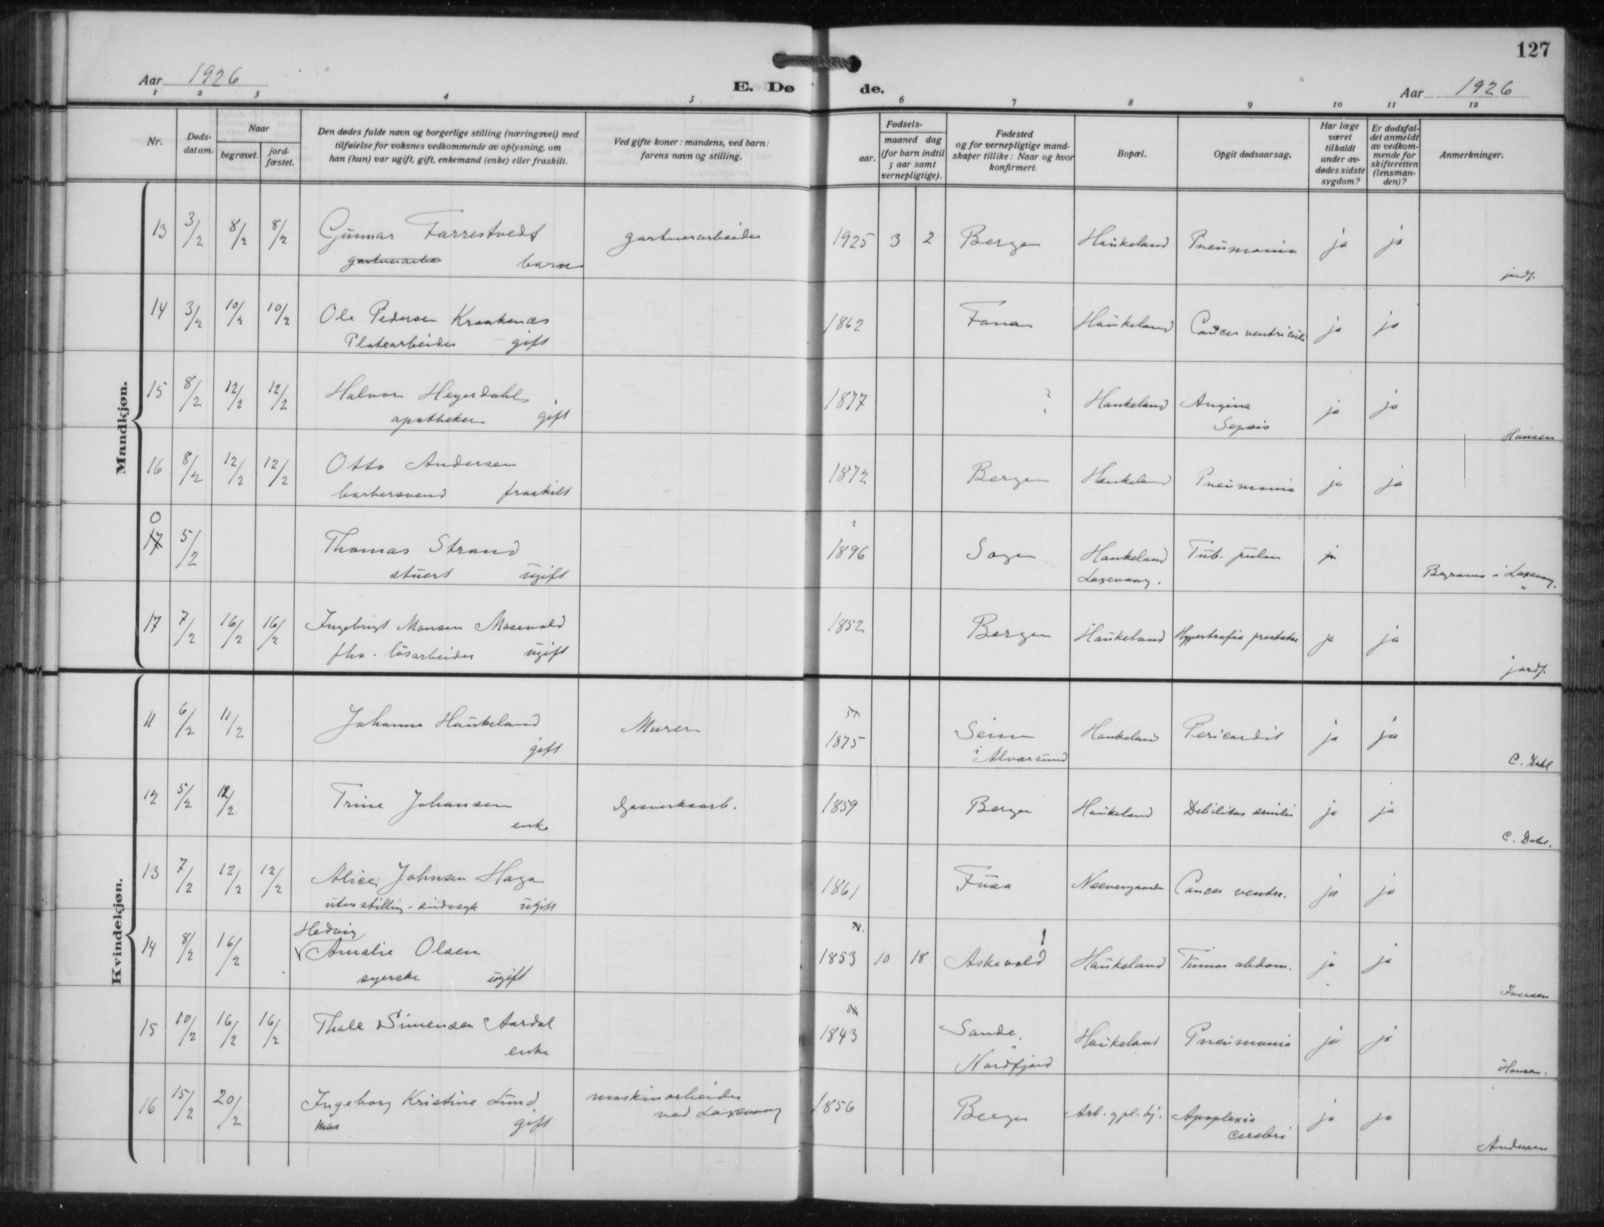 127
Aar 1926
E. Dø de.
Aar 1926
1 2 3 4 5 6 7 8 9 10 11 12
Nr.
Døds-
datum.
Naar
begravet.
jord-
fæstet.
Den dødes fulde navn og borgerlige stilling (næringsvei) med
tilføielse for voksnes vedkommende av oplysning, om
han (hun) var ugift, gift, enkemand (enke) eller fraskilt.
Ved gifte koner: mandens, ved barn:
farens navn og stilling.
Fødsels-
aar.
maaned dag
(for barn indtil
5 aar samt
vernepligtige).
Fødested
og for vernepligtige mand-
skaper tillike: Naar og hvor
konfirmert.
Bopæl.
Opgit dødsaarsag.
Har læge
været
tilkaldt
under av-
dødes sidste
sygdom?
Er dødsfal-
det anmeldt
av vedkom-
mende for
skifteretten
(lensman-
den)?
Anmerkninger.
Mandkjøn.
13 3/2 8/2 8/2 Gunnar Farrestvedt gartnerarbeider 1925 3 2 Bergen Haukeland Pneumonia ja ja
barn jordf.
14 3/2 10/2 10/2 Ole Pedersen Kraakenæs 1862 Fana Haukeland Cancer ventriculi ja ja
Platearbeider gift
15 8/2 12/2 12/2 Halvor Heyerdahl 1877 ? Haukeland Angina ja ja
apotheker gift Sepsis Hansen
16 8/2 12/2 12/2 Otto Andersen 1872 Bergen Haukeland Pneumonia ja ja
barbersvend fraskilt
0
17 5/2 Thomas Strand 1896 Sogn Haukeland Tub. pulm ja
stuert ugift Laxevaag. Begraves i Laxevaag.
17 7/2 16/2 16/2 Ingebrigt Monsen Mosevold 1852 Bergen Haukeland Hypertrofia prostatae ja ja
fhv. løsarbeider ugift jordf.
Kvindekjøn.
11 6/2 11/2 Johanna Haukeland Murer 1875 Seim Haukeland Pericardit ja ja
gift i Alversund C. Dahl
12 5/2 12/2 Trine Johansen Gasverksarb. 1859 Bergen Haukeland Debilitas senilis ja ja
enke C. Dahl.
13 7/2 12/2 12/2 Alice Johnsen Haga 1861 Fusa Neevengaarden Cancer ventr. ja ja
uten stilling - sindssyk ugift
Hedvig
14 8/2 16/2 Amalie Olsen 1853 10 18 Askevold Haukeland Tumor abdom. ja ja
syerske ugift Iversen
15 10/2 16/2 16/2 Thale Simensen Aardal 1843 Sande, Haukeland Pneumonia ja ja
enke Nordfjord Hansen.
16 15/2 20/2 Ingeborg Kristine Lund maskinarbeider 1856 Bergen Arb. g pl. hj. Apoplexia ja ja
gift ved Laxevaag cerebri Andersen